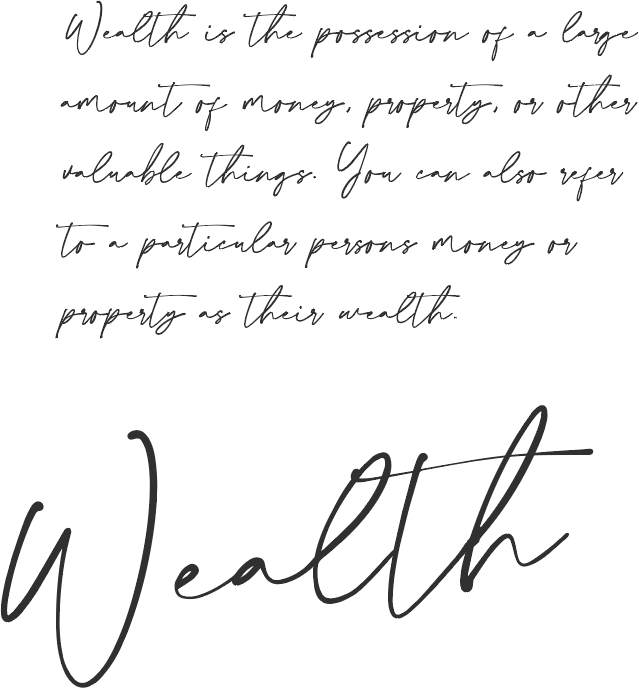 Wealth is the possession of a large
amount of money, property, or other
valuable things. You can also refer
to a particular persons money or
property as their wealth.
Wealth